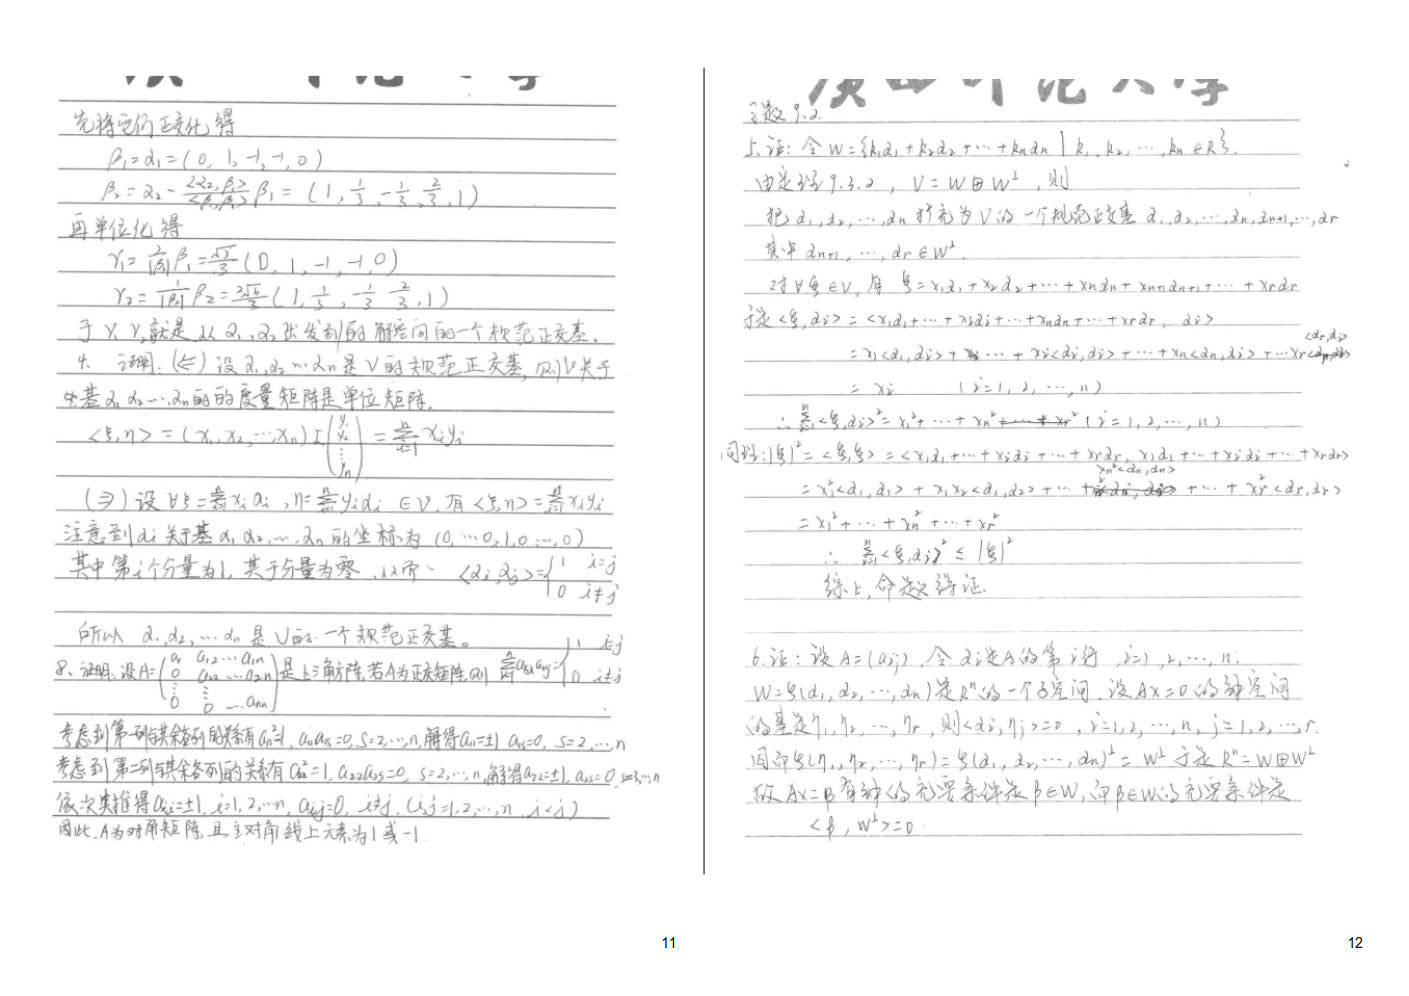 先将它们正交化得
β₁=α₁=(0, 1, -1, -1, 0)
β₂=α₂-<α₂,β₁>/<β₁,β₁> β₁=(1, 1/3, -1/3, 2/3, 1)
再单位化得
γ₁=1/|β₁| β₁=√3/3 (0, 1, -1, -1, 0)
γ₂=1/|β₂| β₂= (1, 1/3, -1/3 2/3, 1)
γ₁ γ₂就是从α₁,α₂出发得到的解空间的一个规范正交基.
4. 证明.(⇐) 设α₁,α₂…αₙ是V的规范正交基,则V关于
基α₁ α₂…αₙ的的度量矩阵是单位矩阵.
<ξ,η>=(x₁,x₂,…,xₙ)I(y₁ y₂ ⋮ yₙ)=Σxᵢyᵢ
(⇒)设∀ξ=Σxᵢαᵢ,η=Σyᵢαᵢ∈V.有<ξ,η>=Σxᵢyᵢ
注意到αᵢ关于基α₁ α₂,…,αₙ的坐标为(0,…0,1,0…,0)
其中第i个分量为1,其于分量为零.从而、<αᵢ,αⱼ>={1 i=j 0 i≠j
所以α₁,α₂,…αₙ是V的一个规范正交基。
8.证明.设A=(a₁₁ a₁₂…a₁ₙ 0 a₂₂…a₂ₙ ⋮ ⋮ 0 0 …aₙₙ)是上三角方阵.若A为正交矩阵.则 Σaₖᵢaₖⱼ={1 i=j 0 i≠j
考虑到第一列与其余各列的关系有a₁₁²=1, a₁₁a₁ₛ=0, s=2,…,n,解得a₁₁=±1 a₁ₛ=0, s=2,…,n
考虑到第二列与其余各列的关系有a₂₂²=1, a₂₂a₂ₛ=0, s=2,…,n,解得a₂₂=±1, a₂ₛ=0, s=3,…,n
依次类推得aᵢᵢ=±1, i=1,2,…n, aᵢⱼ=0, i≠j.(i,j=1,2,…,n i<j)
因此,A为对角矩阵,且主对角线上元素为1或-1.
习题9.2.
5.证:令W={k₁α₁+k₂α₂+…+kₙαₙ|k₁,k₂,…,kₙ∈R}.
由定理9.3.2,V=W⊕W^⊥,则
把α₁,α₂,…,αₙ扩充为V的一个规范正交基α₁,α₂,…,αₙ,αₙ₊₁,…,αr
其中αₙ₊₁,…,αr∈W^⊥
对∀ξ∈V,有ξ=x₁α₁+x₂α₂+…+xₙαₙ+xₙ₊₁αₙ₊₁+…+xrαr
于是<ξ,αᵢ>=<x₁α₁+…+xᵢαᵢ+…+xₙαₙ+…+xrαr, αᵢ>
=x₁<α₁,αᵢ>+…+xᵢ<αᵢ,αᵢ>+…+xₙ<αₙ,αᵢ>+…xr<αr,αᵢ>
=xᵢ (i=1,2,…,n)
∴Σ<ξ,αᵢ>²=x₁²+…+xₙ² (i=1,2,…,n)
同理:|ξ|²=<ξ,ξ>=<x₁α₁+…+xᵢαᵢ+…+xrαr, x₁α₁+…+xᵢαᵢ+…+xrαr>
=x₁²<α₁,α₁>+x₁x₂<α₁,α₂>+…+xₙ²<αₙ,αₙ>+…+xr²<αr,αr>
=x₁²+…+xₙ²+…+xr²
∴ Σ<ξ,αᵢ>²≤|ξ|²
综上,命题得证.
6.证:设A=(aᵢⱼ),令αᵢ是A的第i行,i=1,2,…,n.
W=ℒ(α₁,α₂,…,αₙ)是Rⁿ的一个子空间.设AX=0的解空间
的基是η₁,η₂,…,ηr,则<αᵢ,ηⱼ>=0,i=1,2,…,n,j=1,2,…,r.
因而ℒ(η₁,η₂,…,ηr)=ℒ(α₁,α₂,…,αₙ)^⊥=W^⊥于是Rⁿ=W⊕W^⊥
故AX=β有解的充要条件是β∈W,而β∈W的充要条件是
<β,W^⊥>=0.
11
12